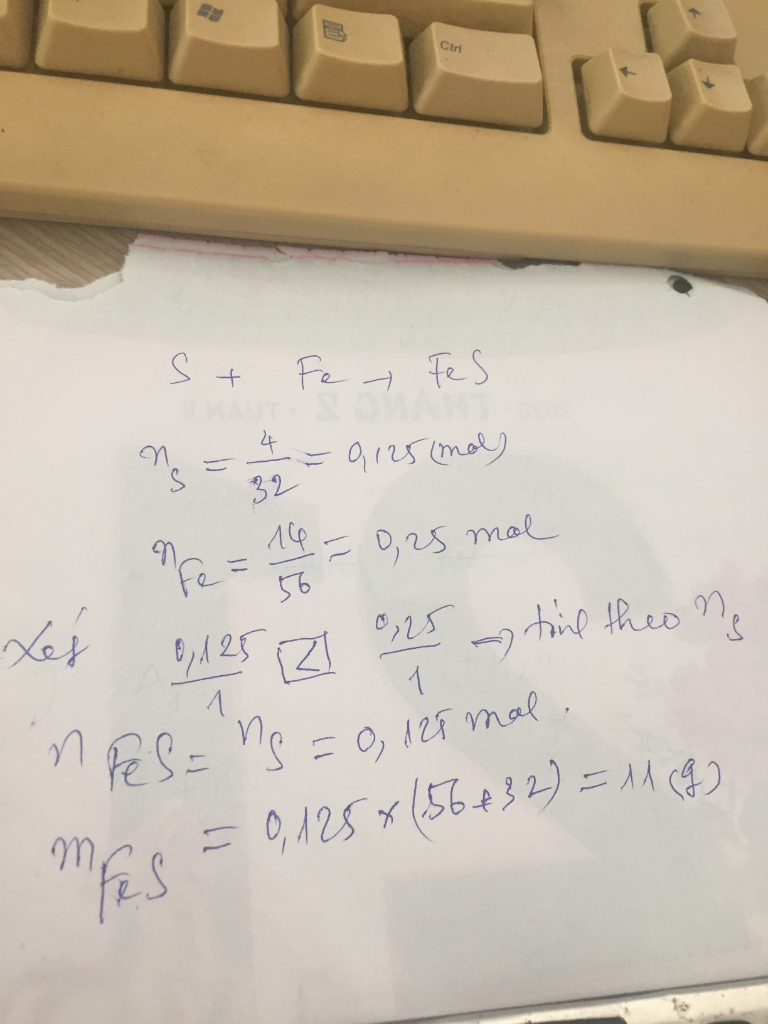 Ctrl
S + Fe → FeS
2020 · THÁNG 2 · TUẦN 8
n_S = 4/32 = 0,125 (mol)
n_Fe = 14/56 = 0,25 mol
Xét 0,125/1 < 0,25/1 → tính theo n_S
n_FeS = n_S = 0,125 mol.
m_FeS = 0,125 x (56+32) = 11 (g)